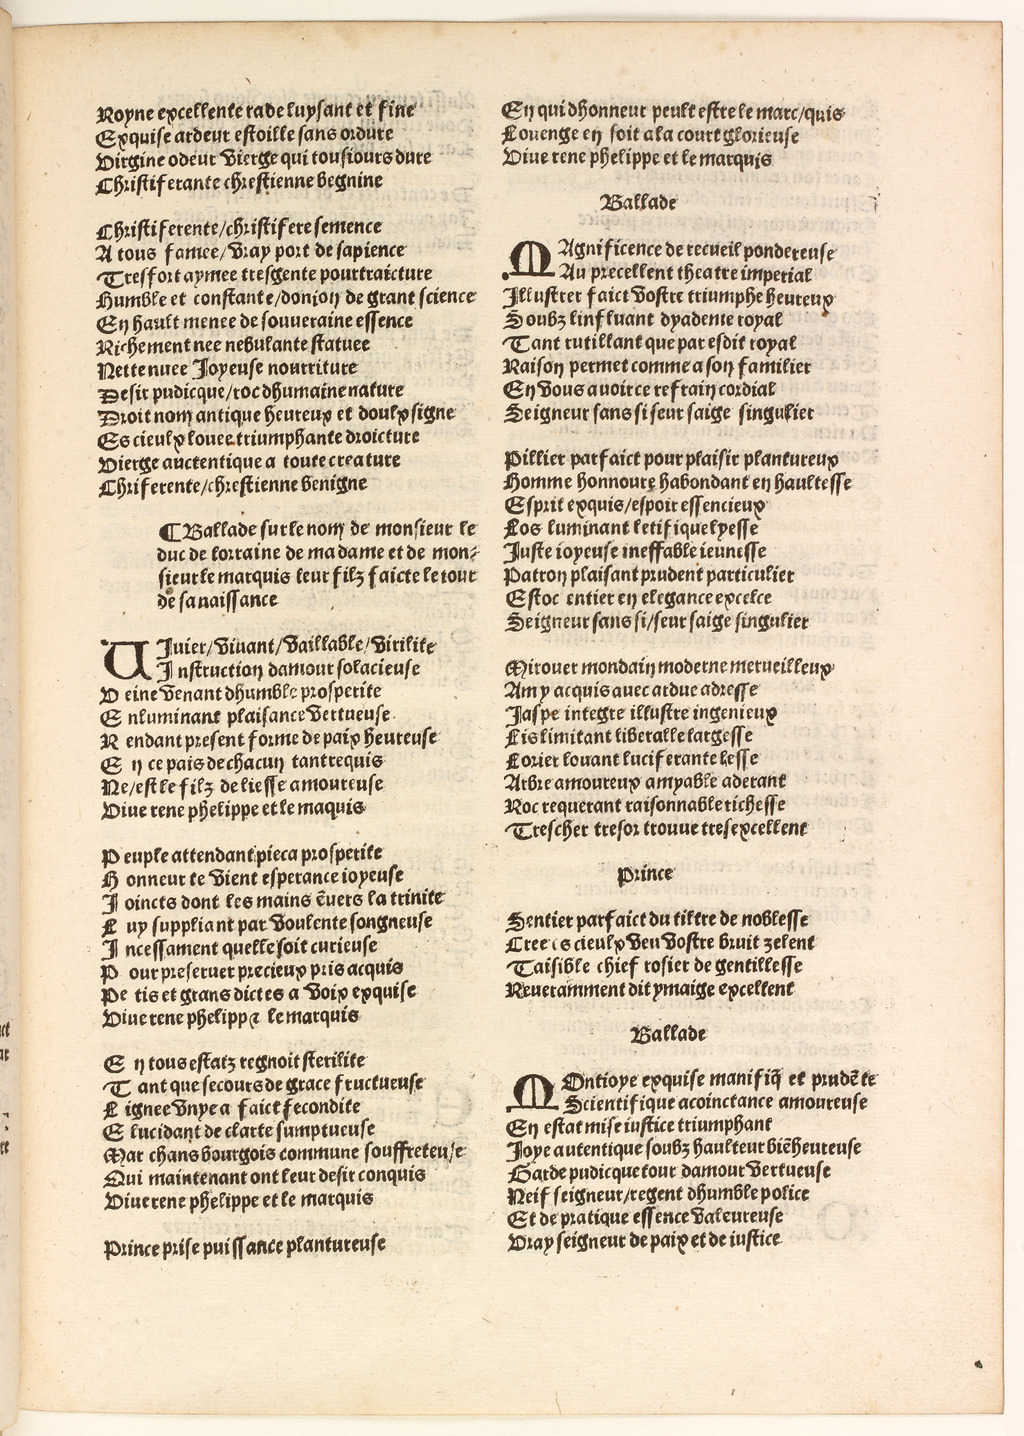 Royne excellente rade luysant et fine
Exquise ardeur estoille sans ordure
Virgine odeur vierge qui tousiours dure
Christiferante chrestienne begnine
Christiferente/christifere semence
A tous famee/vray port de sapience
Tresfort aymee tresgente pourtraicture
Humble et constante/donjon de grant science
En hault menee de souueraine essence
Richement nee nebulante statuee
Nette nuee Joyeuse nourriture
Desir pudicque/roc dhumaine nature
Droit nom antique heureux et doulx signe
Es cieulx louee triumphante droicture
Vierge auctentique a toute creature
Chriferente/chrestienne benigne
¶Ballade sur le nom de monsieur le
duc de lorraine de ma dame et de mon-
sieur le marquis leur filz faicte le iour
de sa naissance
VIuier/viuant/vaillable/virilite
Instruction damour solacieuse
Veine venant dhumble prosperite
Enluminant plaisance vertueuse
Rendant present forme de paix heureuse
En ce pais de chacun tant requis
Ne/est le filz de liesse amoureuse
Viue rene phelippe et le maquis
Peuple attendant pieca prosperite
Honneur te vient esperance ioyeuse
Joincts dont les mains ēuers la trinite
Luy suppliant par voulente songneuse
Incessament quelle soit curieuse
Pour preseruer precieux pris acquis
Petis et grans dictes a voix exquise
Viue rene phelippe & le marquis
En tous estatz regnoit sterilite
Tant que secours de grace fructueuse
Lignee vnye a faict fecondite
Elucidant de clarte sumptueuse
Marchans bourgois commune souffreteuse
Qui maintenant ont leur desir conquis
Viue rene phelippe et le marquis
Prince prise puissance plantureuse
En qui dhonneur peult estre le marc/quis
Louenge en soit a la court glorieuse
Viue rene phelippe et le marquis
Ballade
MAgnificence de recueil pondereuse
Au precellent theatre imperial
Illustrer faict vostre triumphe heureux
Soubz linfluant dyademe royal
Tant rutillant que par esdit royal
Raison permet comme a son familier
En vous auoir ce refrain cordial
Seigneur sans si seur saige singulier
Pillier parfaict pour plaisir plantureux
Homme honnoure habondant en haultesse
Esprit exquis/espoir essencieux
Los luminant letifique lyesse
Juste ioyeuse ineffable ieunesse
Patron plaisant prudent particulier
Estoc entier en elegance excelce
Seigneur sans si/seur saige singulier
Mirouer mondain moderne merueilleux
Amy acquis auec ardue adresse
Jaspe integre illustre ingenieux
Lis limitant liberalle largesse
Lorier louant luciferante lesse
Arbre amoureux amyable aderant
Roc requerant raisonnable richesse
Trescher tresor trouue tresexcellent
Prince
Sentier parfaict du tiltre de noblesse
Cree es cieulx veu vostre bruit zelent
Taisible chief rosier de gentillesse
Reueramment dit ymaige excellent
Ballade
MOntioye exquise manifiq̄ et prudēte
Scientifique acoinctance amoureuse
En estat mise iustice triumphant
Joye autentique soubz haulteur biēheureuse
Garde pudicque tour damour vertueuse
Neif seigneur/regent dhumble police
Et de pratique essence valeureuse
Vray seigneur de paix et de iustice